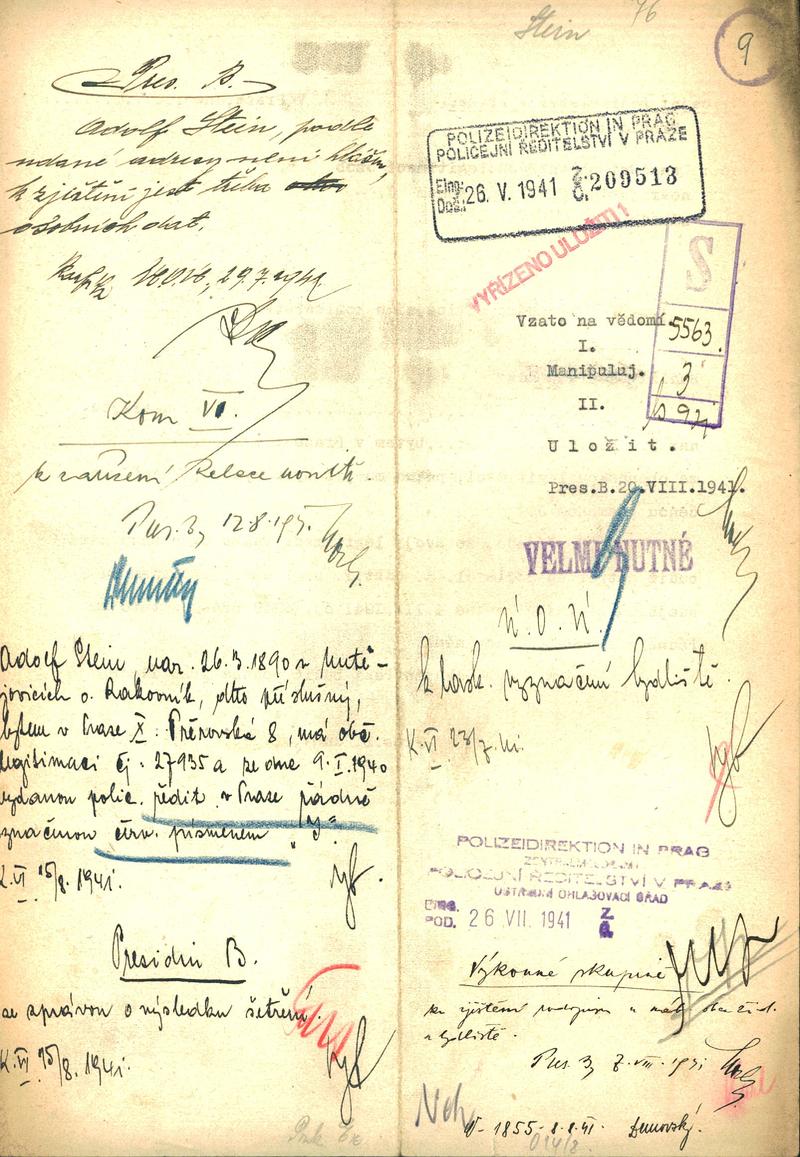 Stein 76
9
Pres. B.
Adolf Stein, podle
udané adresy není hlášen,
k zjištění jest třeba
osobních dat.
29.7.1941
Kom VI.
k zařízení
Pres. B, 12.8.1941.
Adolf Stein, nar. 26.3.1890 v Mutě-
jovicích o. Rakovník, dtto příslušný,
bytem v Praze X. Přerovská 8, má obč.
legitimaci čj. 27935 a ze dne 9.I.1940
vydanou polic. ředit. v Praze řádně
značenou červ. písmenem "J"
K.VI 15/8. 1941.
Presidiu B.
se zprávou o výsledku šetření.
K.VI 15/8. 1941.
POLIZEIDIREKTION IN PRAG
POLICEJNÍ ŘEDITELSTVÍ V PRAZE
Eing.
Došl. 26. V. 1941 Z. Č. 209513
VYŘÍZENO ULOŽITI!
S
5563.
3
Vzato na vědomí.
I.
Manipuluj.
II.
Uložit.
Pres.B.20.VIII.1941.
VELMI NUTNÉ
Ú.O.Ú.
k lask. vyznačení bydliště.
K.VI 23/7. 41.
POLIZEIDIREKTION IN PRAG
ZENTRALMELDEAMT
POLICEJNÍ ŘEDITELSTVÍ V PRAZE
ÚSTŘEDNÍ OHLAŠOVACÍ ÚŘAD
EING.
POD. 26 VII. 1941 Z. Č.
Výkonné skupině
ke zjištění
a bydliště.
Pres. B, 7. VIII. 1941
V- 1855 - 8.8.41.